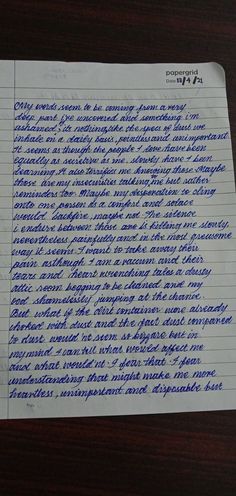 papergrid
Date: 18/4/21
My words seem to be coming from a very
deep part i've uncovered and something i'm
ashamed; its nothing, like the specs of dust we
inhale on a daily basis, pointless and unimportant.
It seems as though the people I love have been
equally as secretive as me, slowly have I been
learning. It also terrifies me knowing those. Maybe
those are my insecurities talking, me but rather
reminders too. Maybe my desperation to cling
onto one person as a comfort and solace
would backfire, maybe not. The silence
i endure between those are is killing me slowly,
nevertheless painfully and in the most gruesome
way. It seems I want to take away their
pain as though I am a vacuum and their
tears and heart wrenching tales a dusty
attic room begging to be cleaned and my
soul shamelessly jumping at the chance.
But what if the dirt container were already
choked with dust and the fact dust compared
to dust would nt seem so bizare but in
my mind I can tell what would affect me
and what would'nt. I fear that. I fear
understanding that might make me more
heartless, unimportant and disposable but